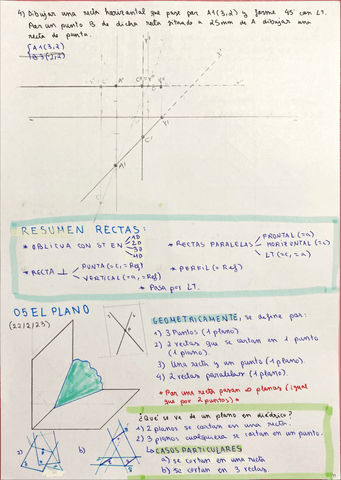 4) Dibujar una recta horizontal que pase por A1(3,2) y forme 45° con LT.
Por un punto B de dicha recta situado a 25mm de A dibujar una
recta de punta.
{A1(3,2)
B3(2,2)
A'
C'
V'
RESUMEN RECTAS:
* OBLICUA CON ST EN 1D 2D 3D 4D
* RECTAS PARALELAS FRONTAL (=a) HORIZONTAL (=a) LT (=c, =a)
* RECTA ⊥ PUNTA (=c, =Ref) VERTICAL (=a, =Ref)
* PERFIL (= Ref)
* Pasa por LT.
05 EL PLANO
(22/2/23)
GEOMETRICAMENTE, se define por:
1) 3 Puntos (1 plano).
2) 2 rectas que se cortan en 1 punto
(1 plano).
3) Una recta y un punto (1 plano).
4) 2 rectas paralelas (1 plano).
* Por una recta pasan ∞ planos (igual
que por 2 puntos) *
¿Qué se ve de un plano en diédrico?
1) 2 planos se cortan en una recta.
2) 3 planos cualquiera se cortan en un punto.
↳ CASOS PARTICULARES
a) se cortan en una recta
b) se cortan en 3 rectas.
a)
b)